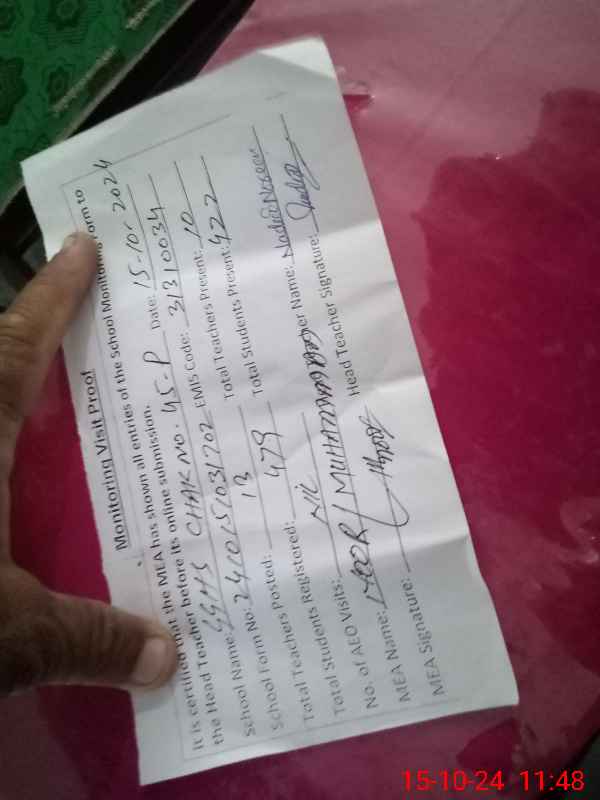 Monitoring Visit Proof
It is certified that the MEA has shown all entries of the School Monitoring Form to
the Head Teacher before its online submission.
School Name: GGHS CHAK NO. 45-P Date: 15-10-2024
School Form No: 2410151031702 EMIS Code: 31310034
School Teachers Posted: 13 Total Teachers Present: 10
Total Teachers Registered: 479 Total Students Present: 422
Total Students Visits: Nil
No. of AEO Visits: Name: Nadia Noreen
MEA Name: NOOR MUHAMMAD Head Teacher Signature:
MEA Signature:
15-10-24 11:48